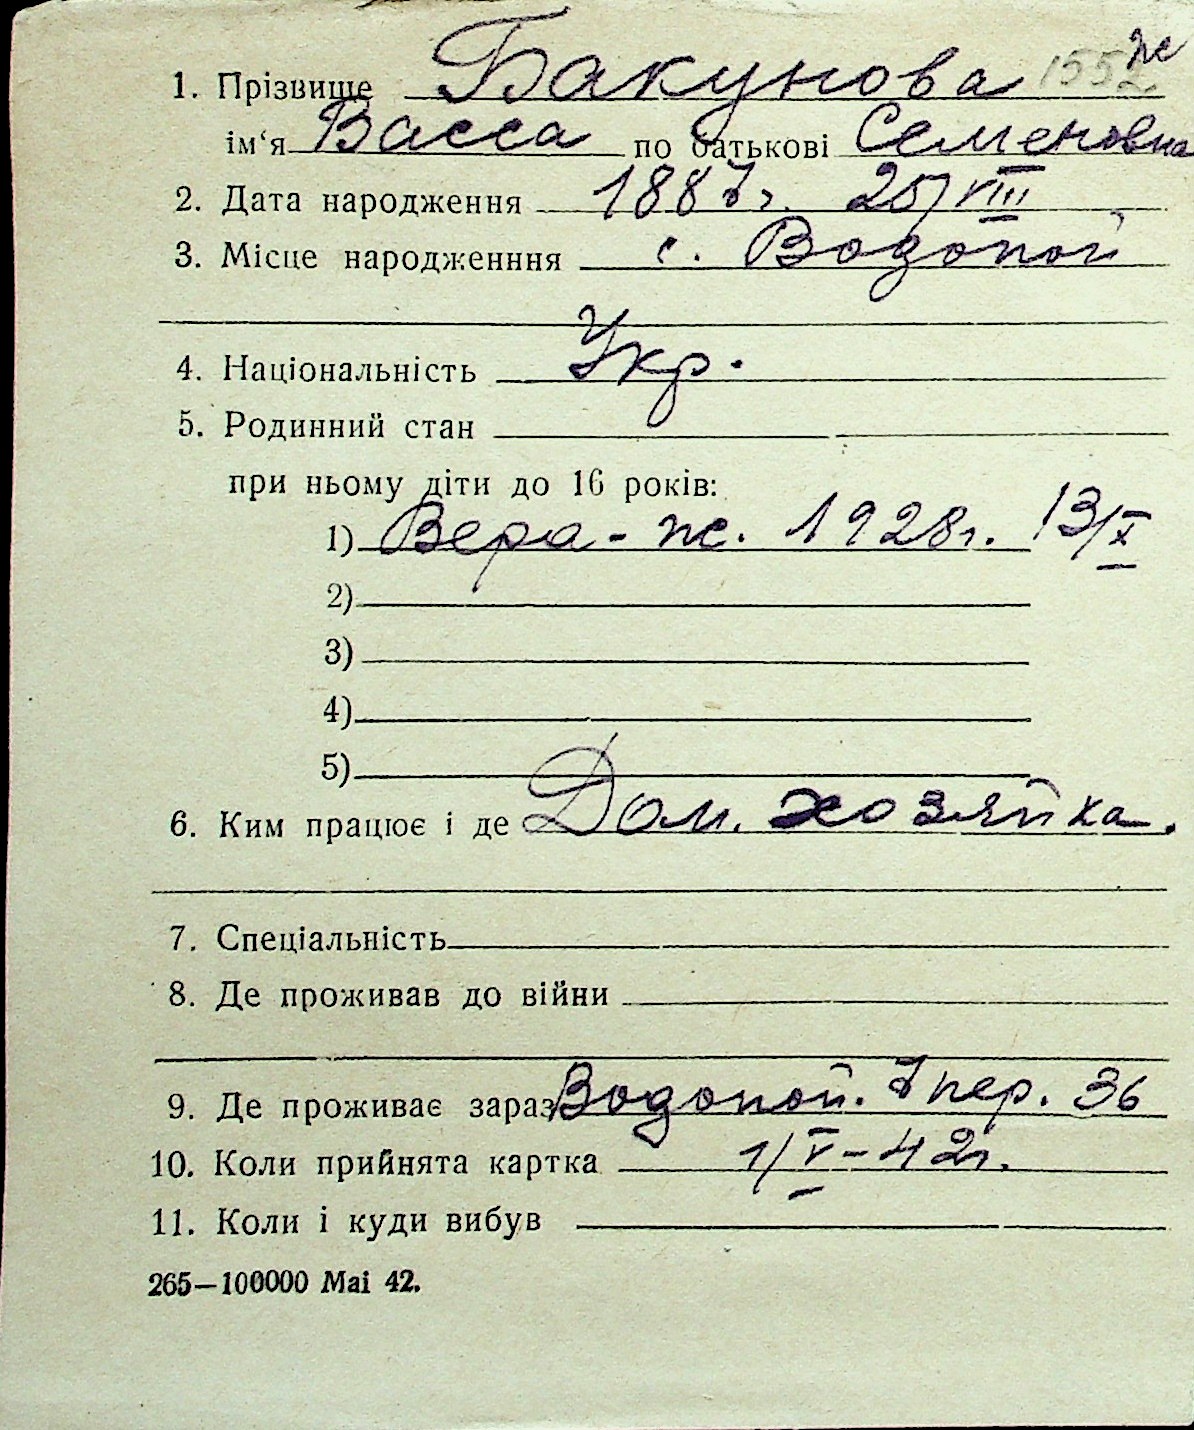 1. Прізвище Бакунова 1552 ж
ім‘я Васса по батькові Семеновна
2. Дата народження 1887 г. 25/VIII
3. Місце народженння с. Водопой
4. Національність Укр.
5. Родинний стан
при ньому діти до 16 років:
1) Вера - ж. 1928 г. 13/X
2)
3)
4)
5)
6. Ким працює і де Дом. хозяйка.
7. Спеціальність
8. Де проживав до війни
9. Де проживає зараз Водопой. 7 пер. 36
10. Коли прийнята картка 1/V-42 г.
11. Коли і куди вибув
265—100000 Mai 42.